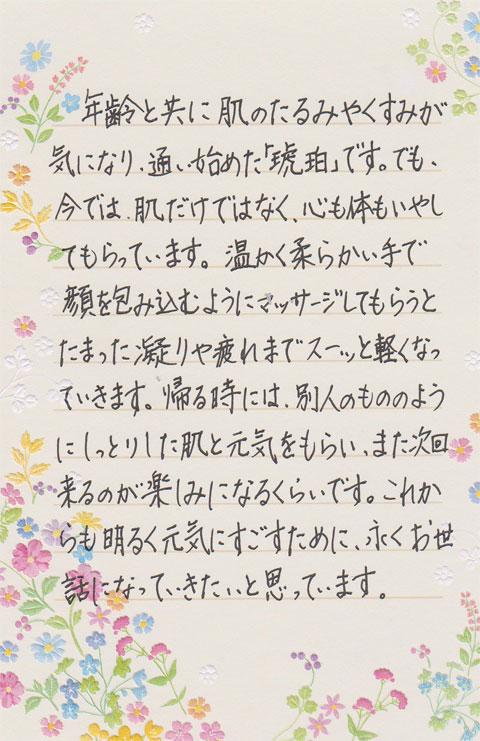 年齢と共に肌のたるみやくすみが
気になり、通い始めた「琥珀」です。でも、
今では、肌だけではなく、心も体もいやし
てもらっています。温かく柔らかい手で
顔を包み込むようにマッサージしてもらうと
たまった凝りや疲れまでスーッと軽くなっ
ていきます。帰る時には、別人のもののよう
にしっとりした肌と元気をもらい、また次回
来るのが楽しみになるくらいです。これか
らも明るく元気にすごすために、永くお世
話になっていきたいと思っています。